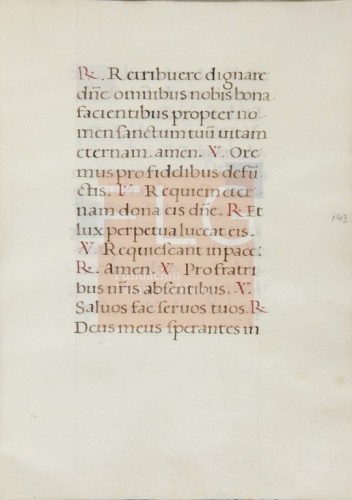 ℟. Retribuere dignare
dñe omnibus nobis bona
facientibus propter no
men sanctum tuũ uitam
eternam. amen. ℣. Ore
mus pro fidelibus defũ
ctis. ℣. Requiem eter
nam dona eis dñe. ℟. Et
lux perpetua luceat eis.
℣. Requiescant in pace.
℟. Amen. ℣. Pro fratri
bus nr̃is absentibus. ℣.
Saluos fac seruos tuos. ℟.
Deus meus sperantes in
143
FLC